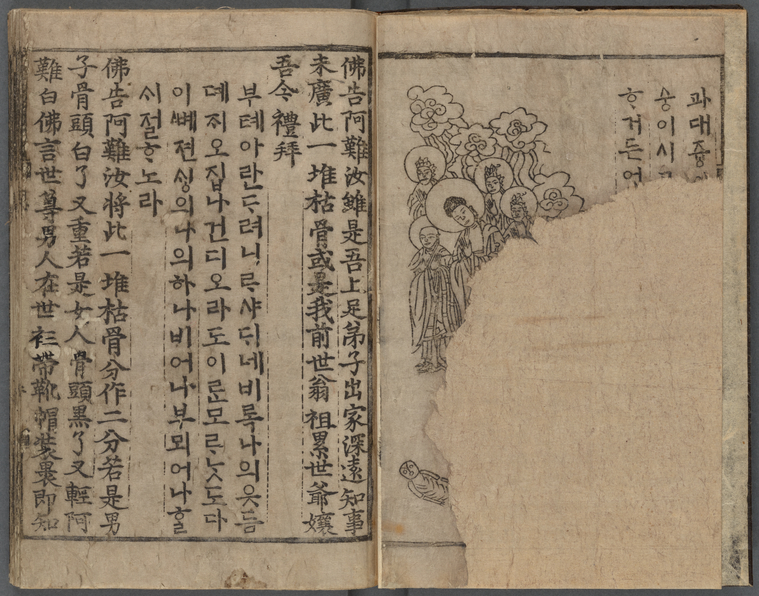 과대즁
숭이시
ᄒᆞ거든어
佛告阿難汝雖是吾上足弟子出家深遠知事
未廣此一堆枯骨或是我前世翁祖累世爺孃
吾今禮拜
부톄아란ᄃᆞ려니ᄅᆞ샤ᄃᆡ네비록나의웃듬
뎨ᄌᆡ오집나건디오라도이ᄅᆞᆫ모ᄅᆞᄂᆞᆺ도다
이ᄲᅨ젼ᄉᆡᆼ의나의하나비어나부뫼어나ᄒᆞᆯ
시졀ᄒᆞ노라
佛告阿難汝將此一堆枯骨分作二分若是男
子骨頭白了又重若是女人骨頭黑了又輕阿
難白佛言世尊男人在世衫帶靴帽裝裹即知